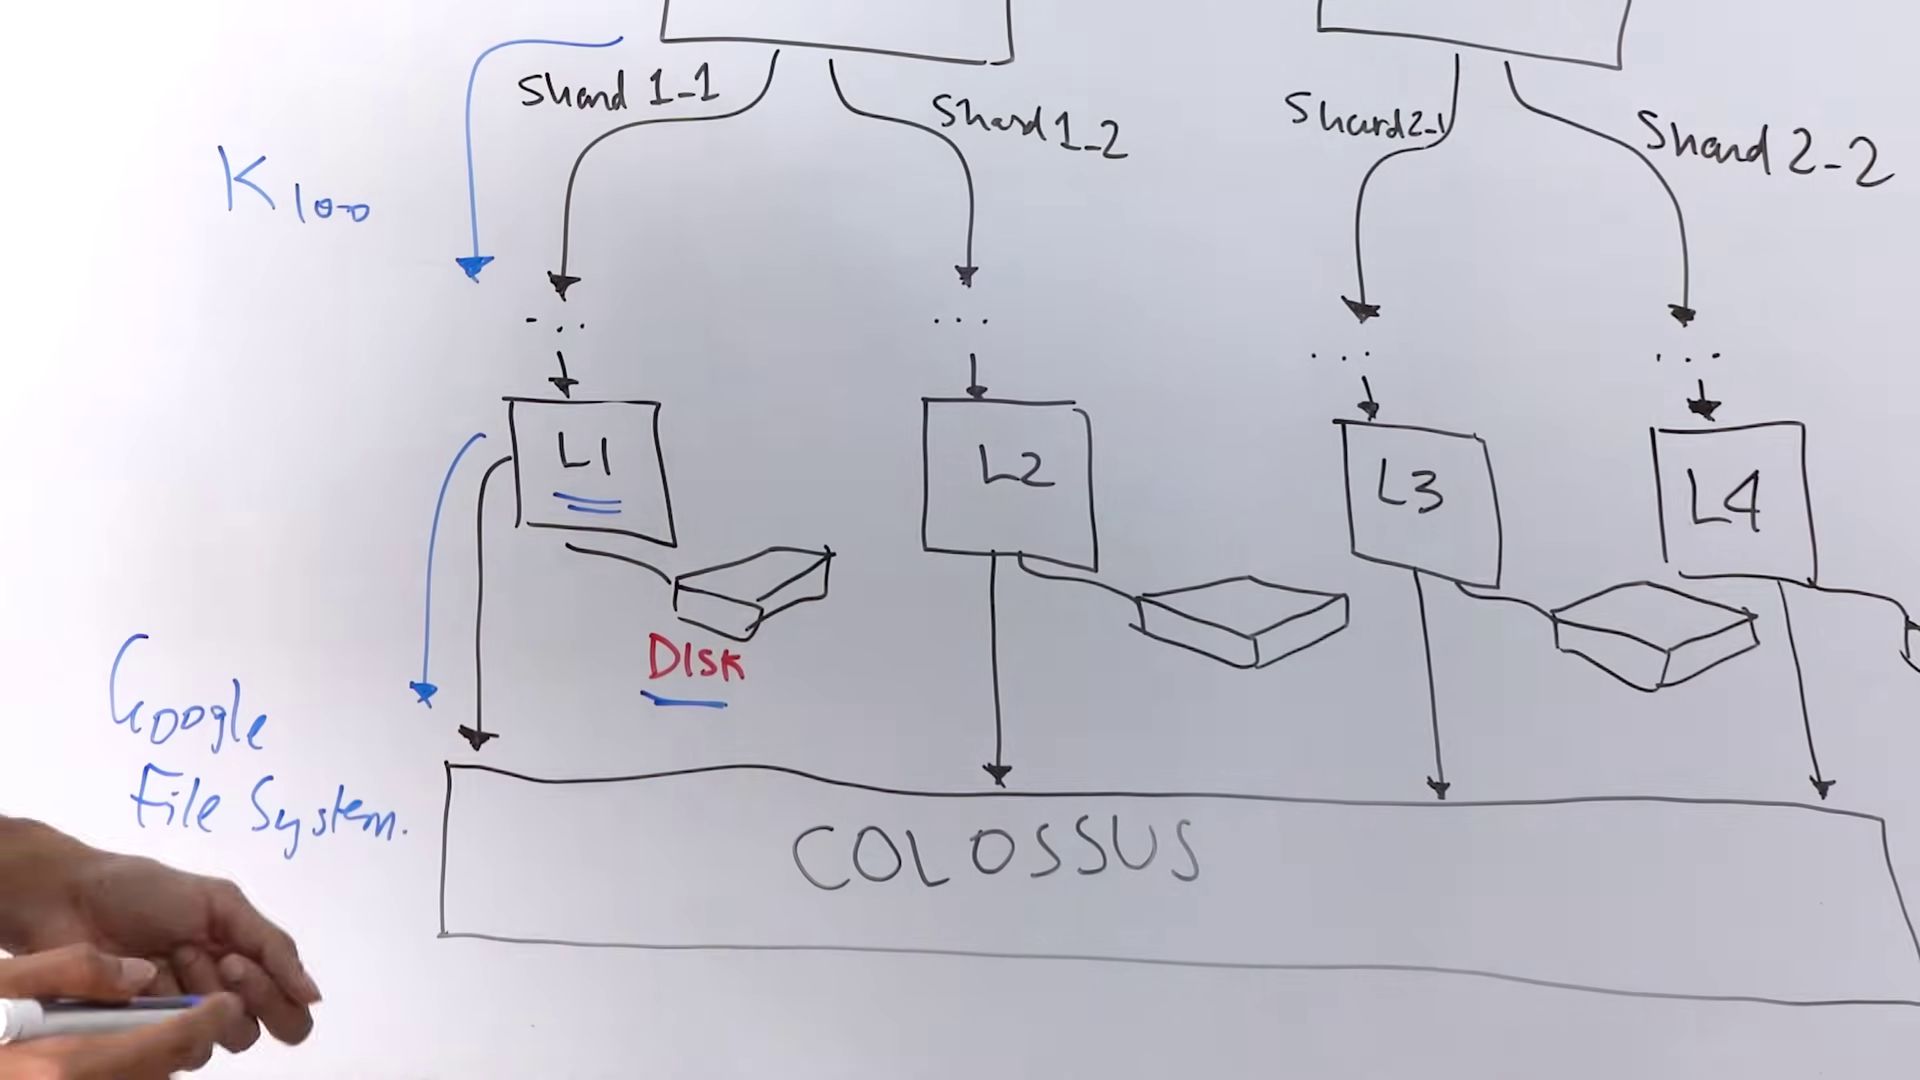 Shard 1-1
Shard 1-2
Shard 2-1
Shard 2-2
K100
...
...
...
...
L1
L2
L3
L4
DISK
Google
File System.
COLOSSUS